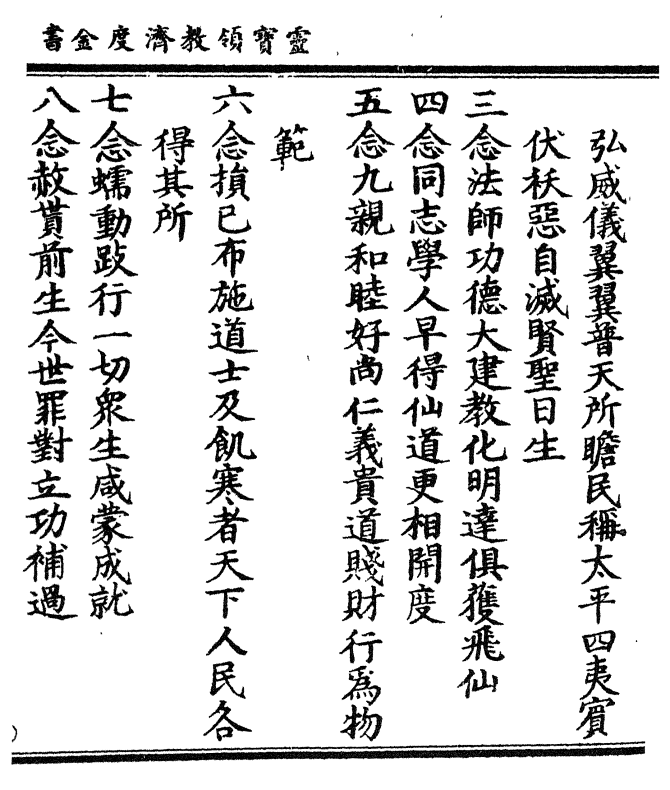 靈寶領教濟度金書
弘威儀翼翼普天所瞻民稱太平四夷賓
伏袄惡自滅賢聖日生
三念法師功德大建教化明達俱獲飛仙
四念同志學人早得仙道更相開度
五念九親和睦好尚仁義貴道賤財行爲物
範
六念損已布施道士及飢寒者天下人民各
得其所
七念蠕動跂行一切衆生咸蒙成就
八念赦貰前生今世罪對立功補過